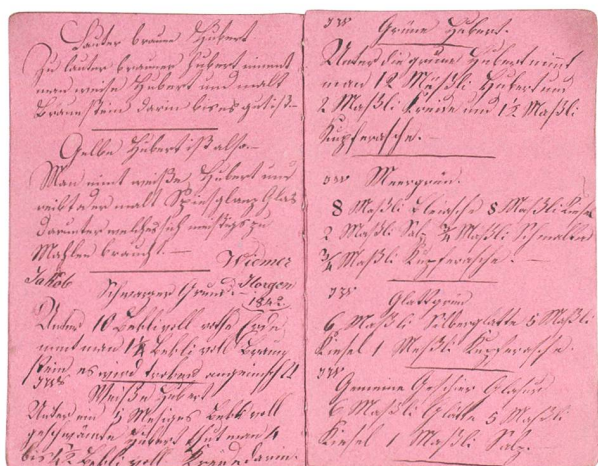 Lauter braune Hubert
Zu lauter brauner Hubert nimmt
man weise Hubert und malt
Braunstein darin bis es gut ist.—
Gelbe Hubert ist also.—
Man nimt weiße Hubert und
reibt oder malt Spiesglanz Glas
darunter welches sich
Mahlen braucht.—
Jakob Wiemer
Schwarzer Grund.— Horgen
1842
Unter 10 Bekli voll rothe Erde
nimt man 1½ Bekli voll Braun
stein es wird trocken eingemischt
Weiße Hubert
Unter ein Mesiges Bekli voll
geschlämte Hubert thut man 4
bis 4½ Bekli voll Kreide darin.
Grüne Hubert.
Unter die grüne Hubert nimt
man 12 Mäßli Hubert und
2 Maßli Kreide und 1½ Maßli
Kupferasche.—
Meergrün.
8 Maßli Bleiasche 8 Maßli Kiesel
2 Maßli Salz ¾ Maßli Schmalten
¾ Maßli Kupferasche.—
Glattgrün
6 Maßli Silberglatte 5 Maßli
Kiesel 1 Maßli Kupferasche.
Gemeine Geschier Glasur
6 Maßli Glätte 5 Maßli
Kiesel 1 Maßli Salz.